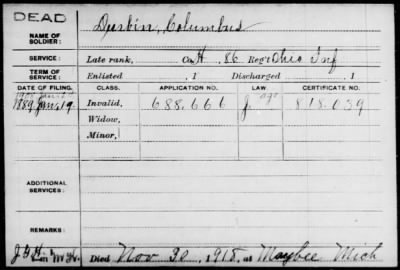 DEAD
NAME OF SOLDIER: Durbin, Columbus
SERVICE: Late rank, Co. H, 86 Reg't Ohio Inf
TERM OF SERVICE: Enlisted , 1 Discharged , 1
DATE OF FILING. CLASS. APPLICATION NO. LAW CERTIFICATE NO.
1889, Jan. 19. Invalid, 688.666 J. 818.039
Widow,
Minor,
ADDITIONAL SERVICES:
REMARKS:
Died Nov 30, 1918, at Maybee Mich